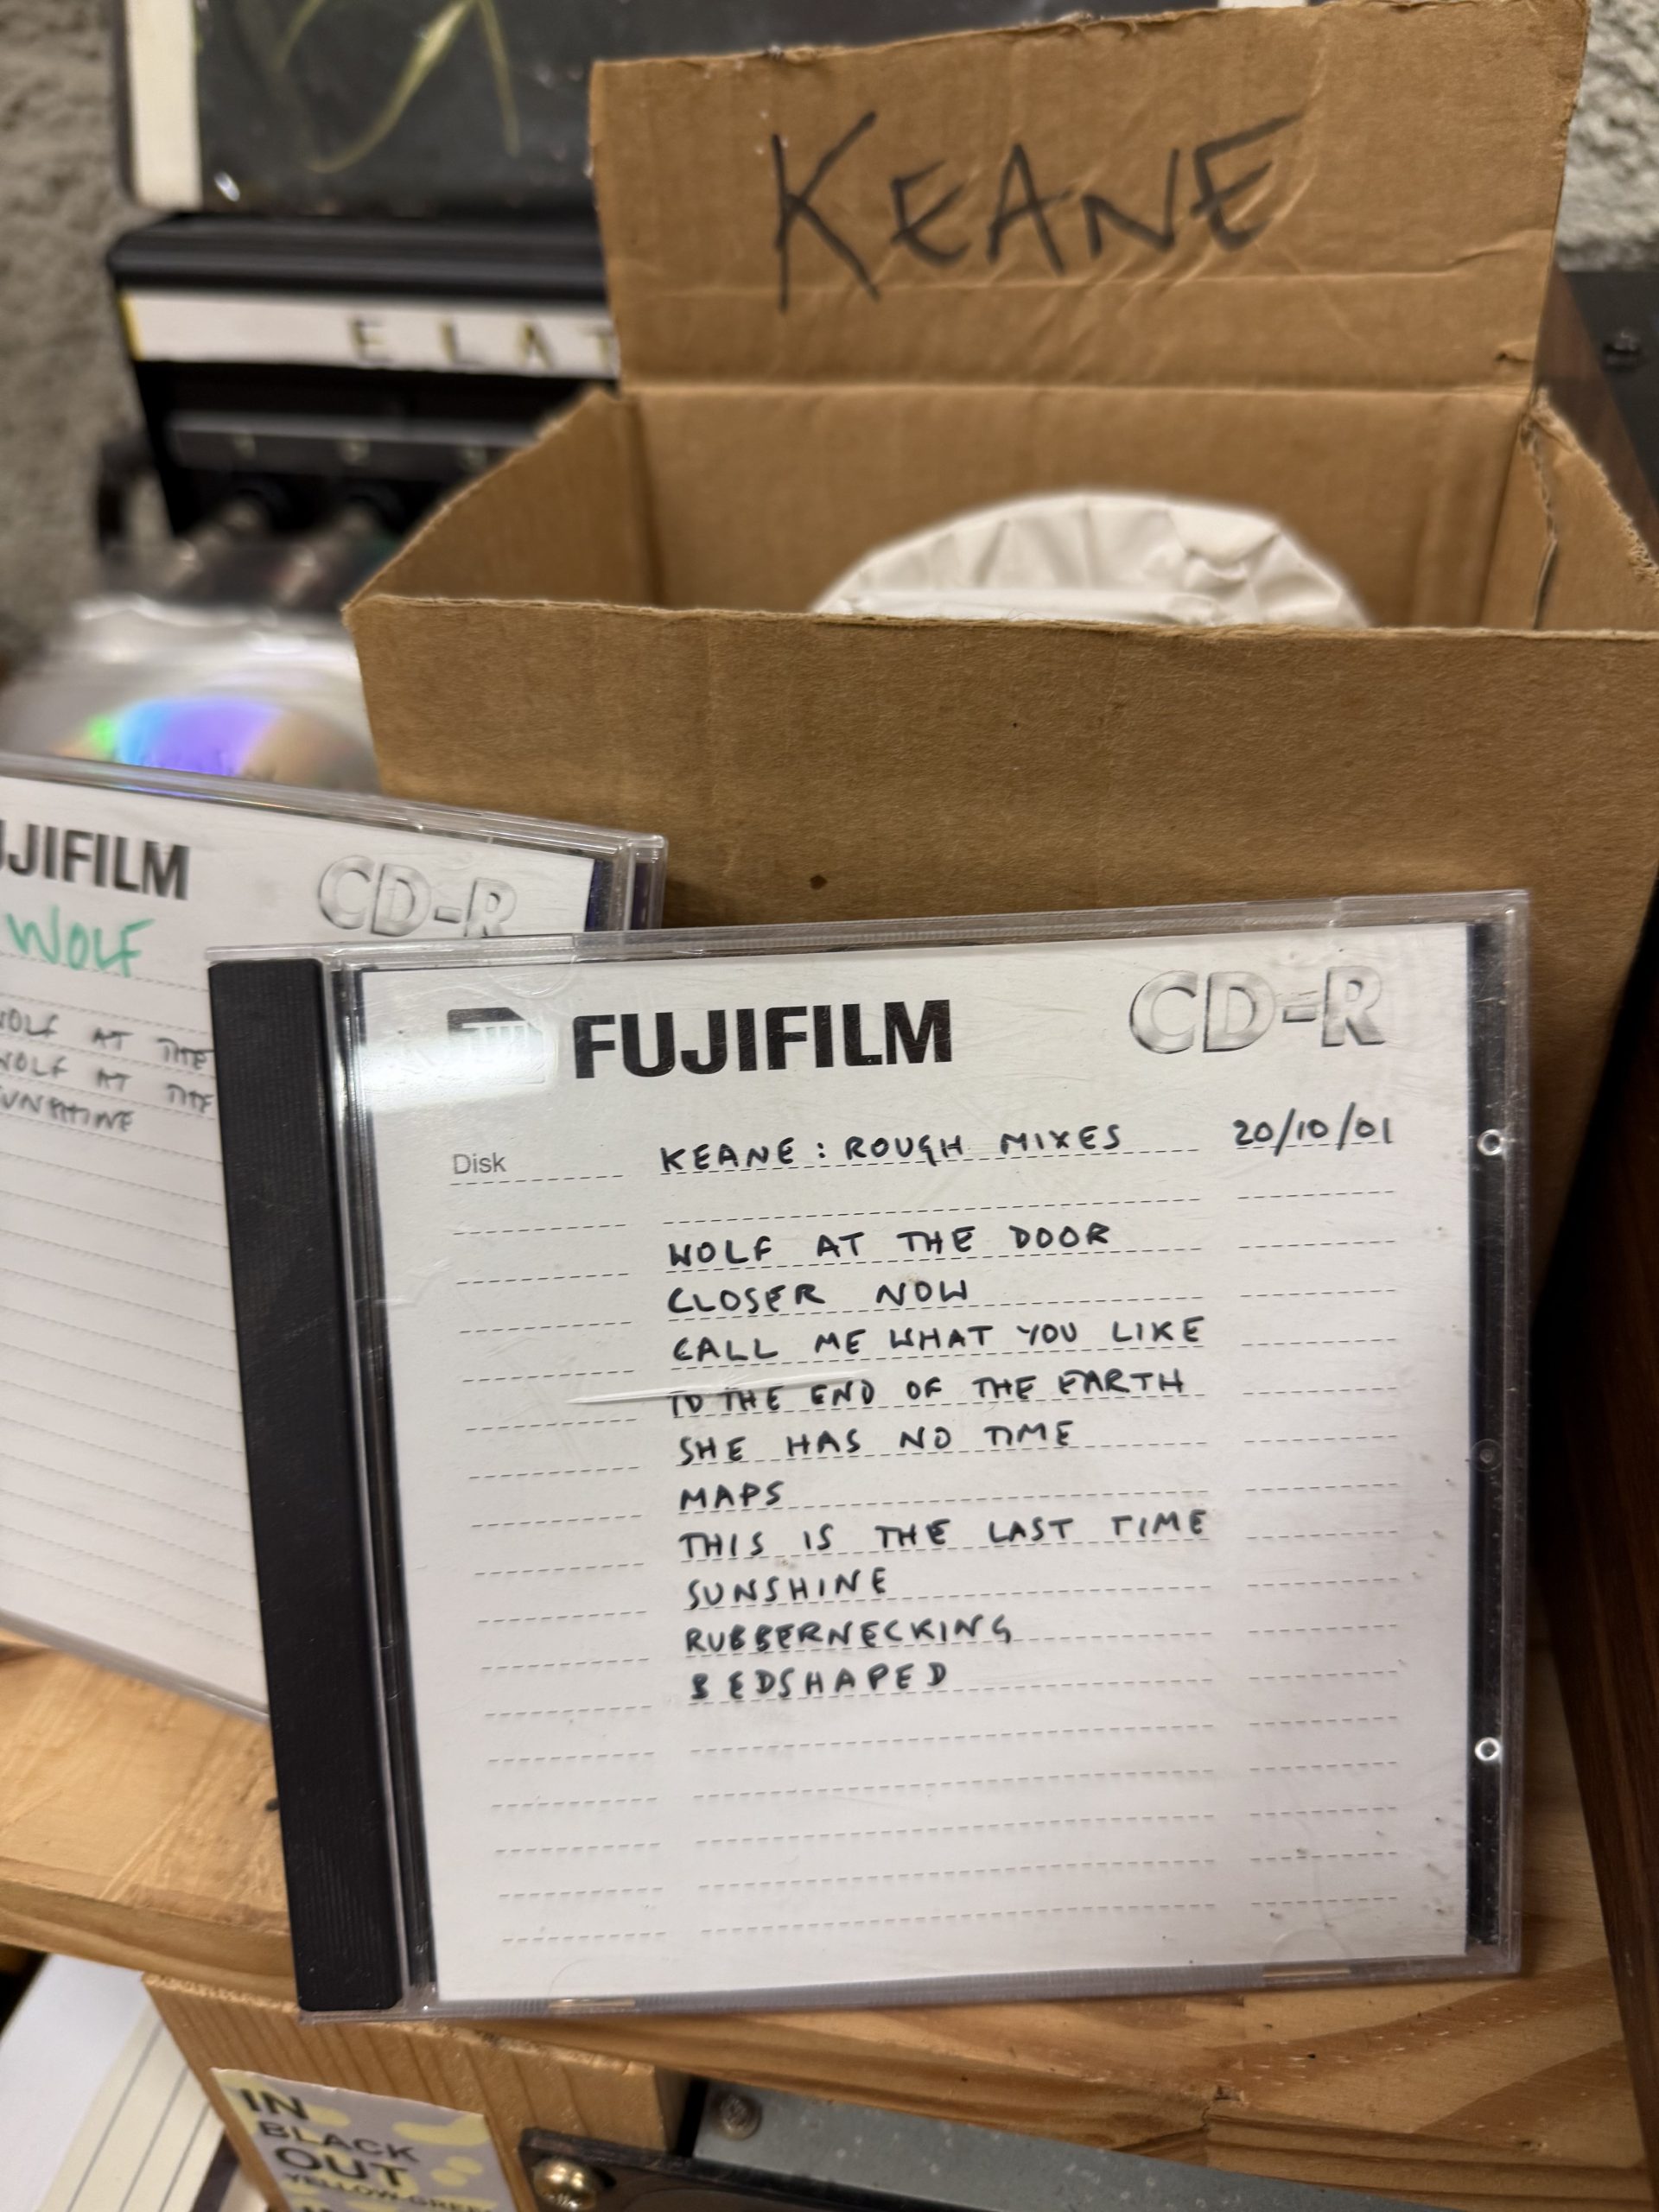 KEANE
ELAT
FUJIFILM
CD-R
WOLF
WOLF AT THE
WOLF AT THE
SUNSHINE
FUJIFILM
CD-R
Disk KEANE : ROUGH MIXES 20/10/01
WOLF AT THE DOOR
CLOSER NOW
CALL ME WHAT YOU LIKE
TO THE END OF THE EARTH
SHE HAS NO TIME
MAPS
THIS IS THE LAST TIME
SUNSHINE
RUBBERNECKING
BEDSHAPED
IN
BLACK
OUT
YELLOW-GREE